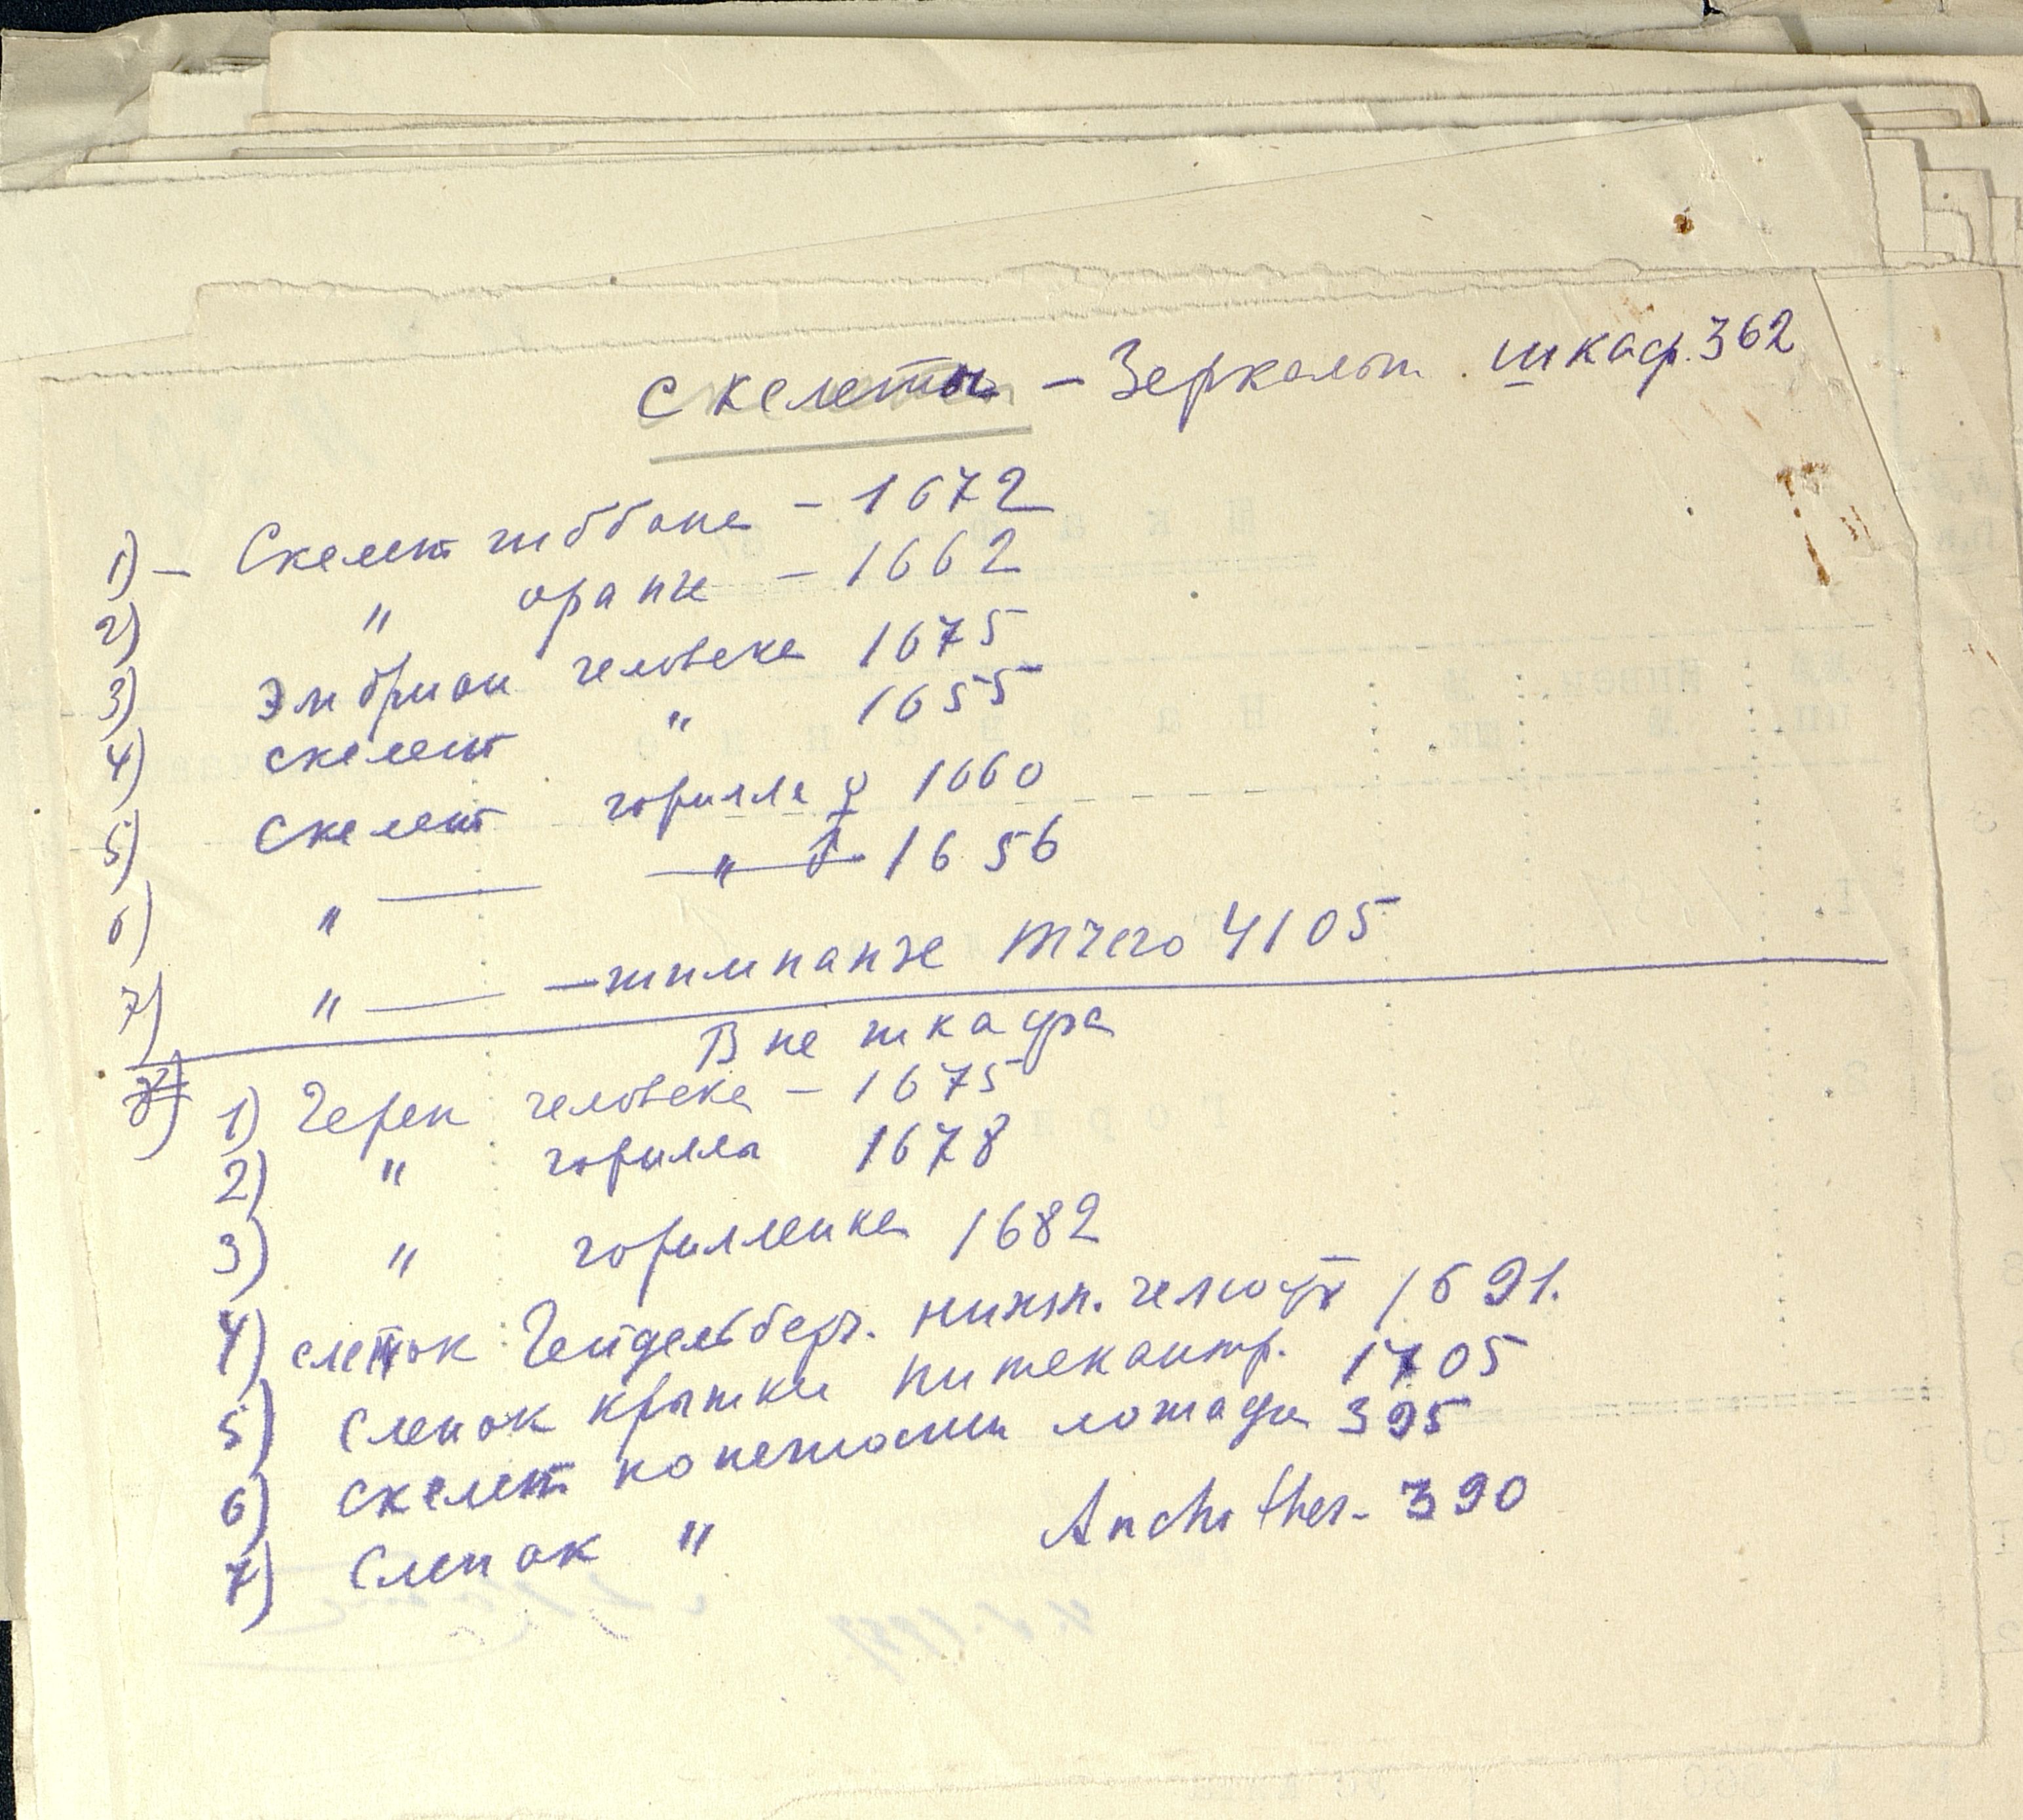 Скелеты – Зеркальн. шкаф. 362
1) – Скелет гиббона – 1672
2) " оранг – 1662
3) Эмбрион человека 1675
4) скелет " 1655
5) Скелет горилла ♀ 1660
6) " — — " — ♂ 1656
7) " — — шимпанзе Тчего 4105
Вне шкафа
8) 1) Череп человека – 1675
2) " горилла 1678
3) " гориллёнка 1682
4) слепок Гейдельберг. нижн. челюсть 1691.
5) Слепок крышки питекантр. 1705
6) скелет конечности лошади 395
7) Слепок " Anchither. 390